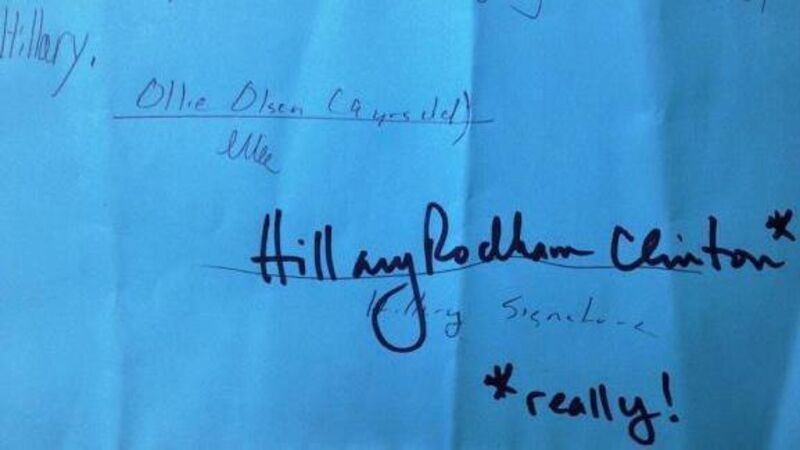 Hillary.
Ollie Olsen (9 yrs old)
Ollie
Hillary Rodham Clinton*
Hillary Signature
*really!